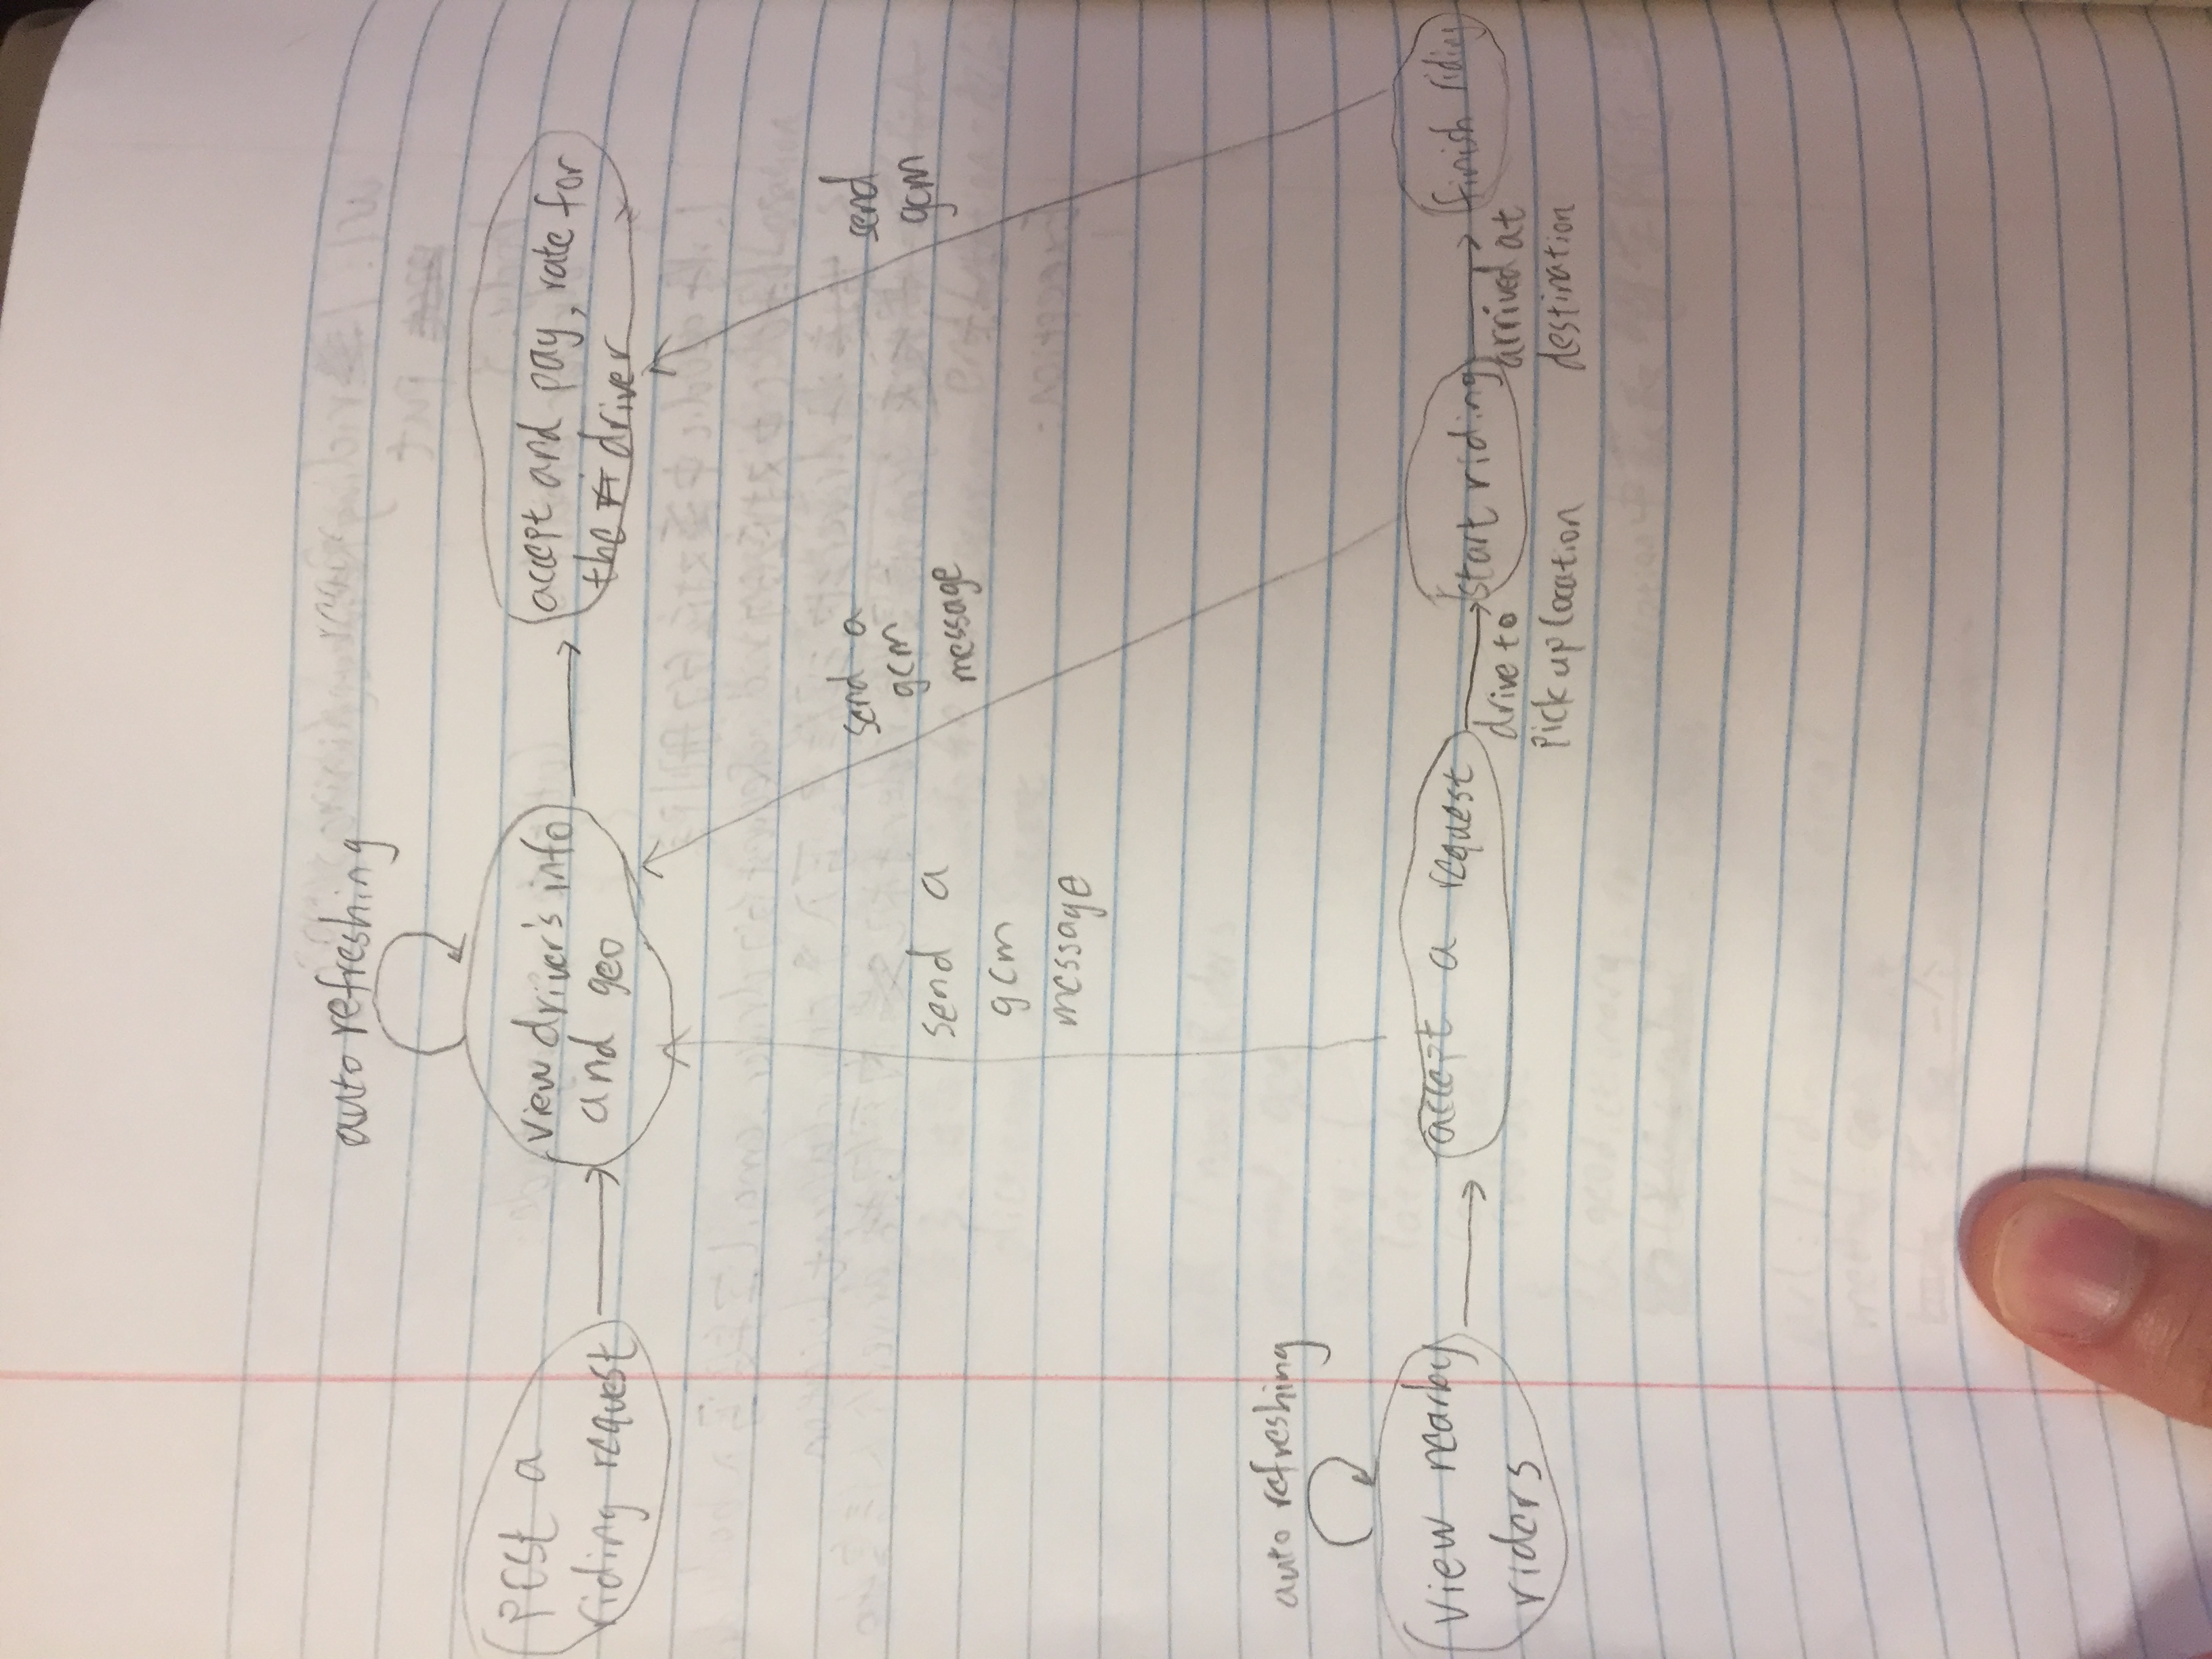 auto refreshing
post a
riding request
view driver's info
and geo
accept and pay, rate for
the driver
send a
gcm
message
send a
gcm
message
send
gcm
auto refreshing
view nearby
riders
accept a request
drive to
pick up location
start riding
arrived at
destination
finish riding